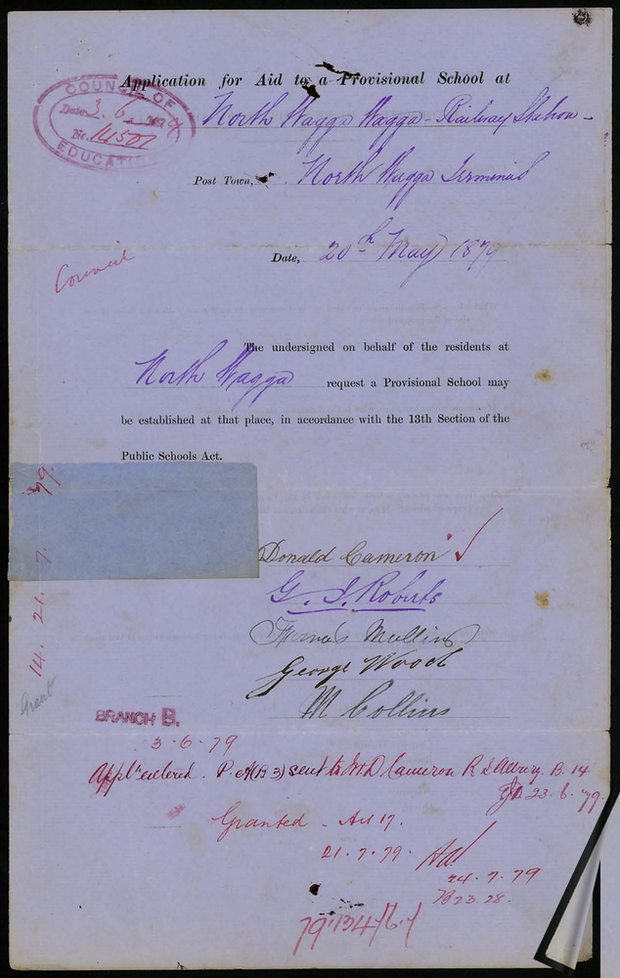 Application for Aid to a Provisional School at
COUNCIL OF
Date 3. 6
No. 14507
EDUCATION
North Wagga Wagga - Railway Station -
Post Town, North Wagga Terminus
Date, 20th May 1879
Council
The undersigned on behalf of the residents at
North Wagga request a Provisional School may
be established at that place, in accordance with the 13th Section of the
Public Schools Act.
14. 21. 7. 79.
Grant
Donald Cameron
G. J. Roberts
Thomas Mullins
George Wood
M Collins
BRANCH B.
3-6-79
Appln entered. P. A(B 3) sent to Mr. D Cameron R S Albury. B. 14
23.6.79.
Granted - Act 17.
21.7.79.
24.7.79
B23.28.